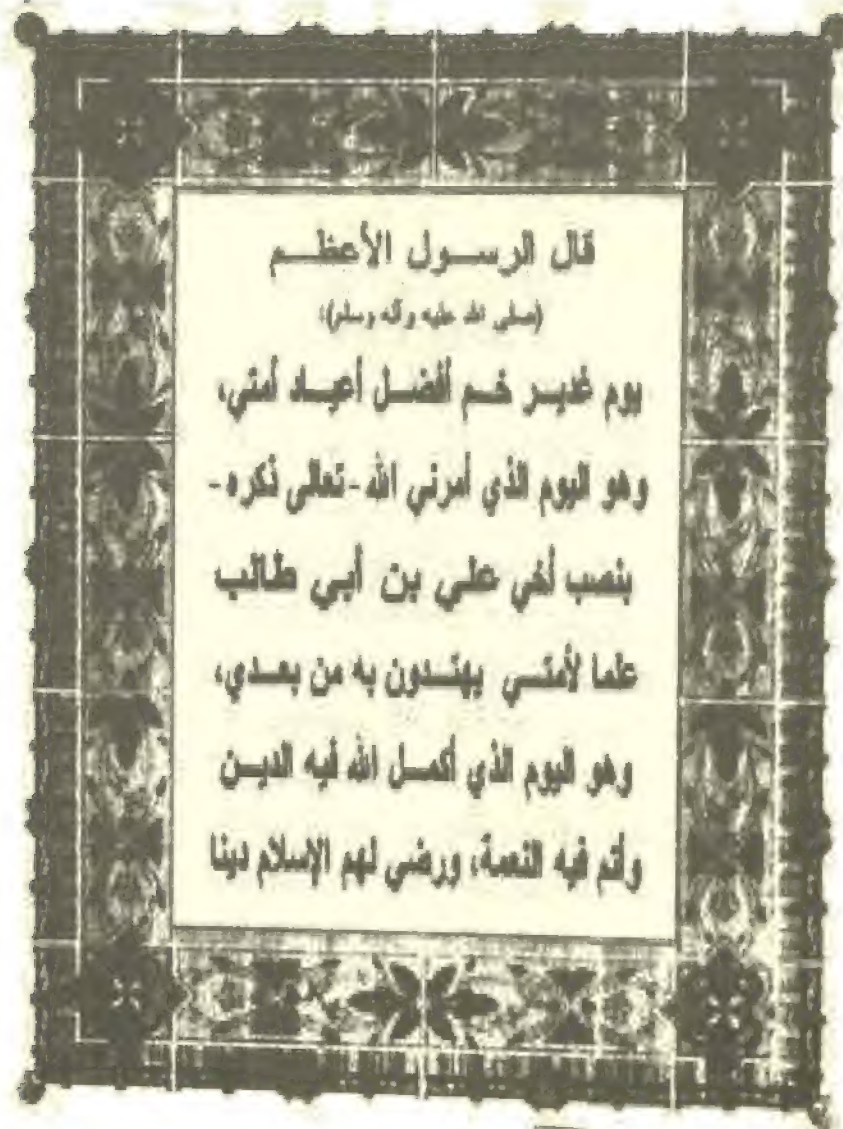 قال الرسول الأعظم
(صلى الله عليه وآله وسلم):
يوم غدير خم أفضل أعياد أمتي،
وهو اليوم الذي أمرني الله -تعالى ذكره-
بنصب أخي علي بن أبي طالب
علما لأمتي يهتدون به من بعدي،
وهو اليوم الذي أكمل الله فيه الدين
وأتم فيه النعمة، ورضي لهم الإسلام دينا